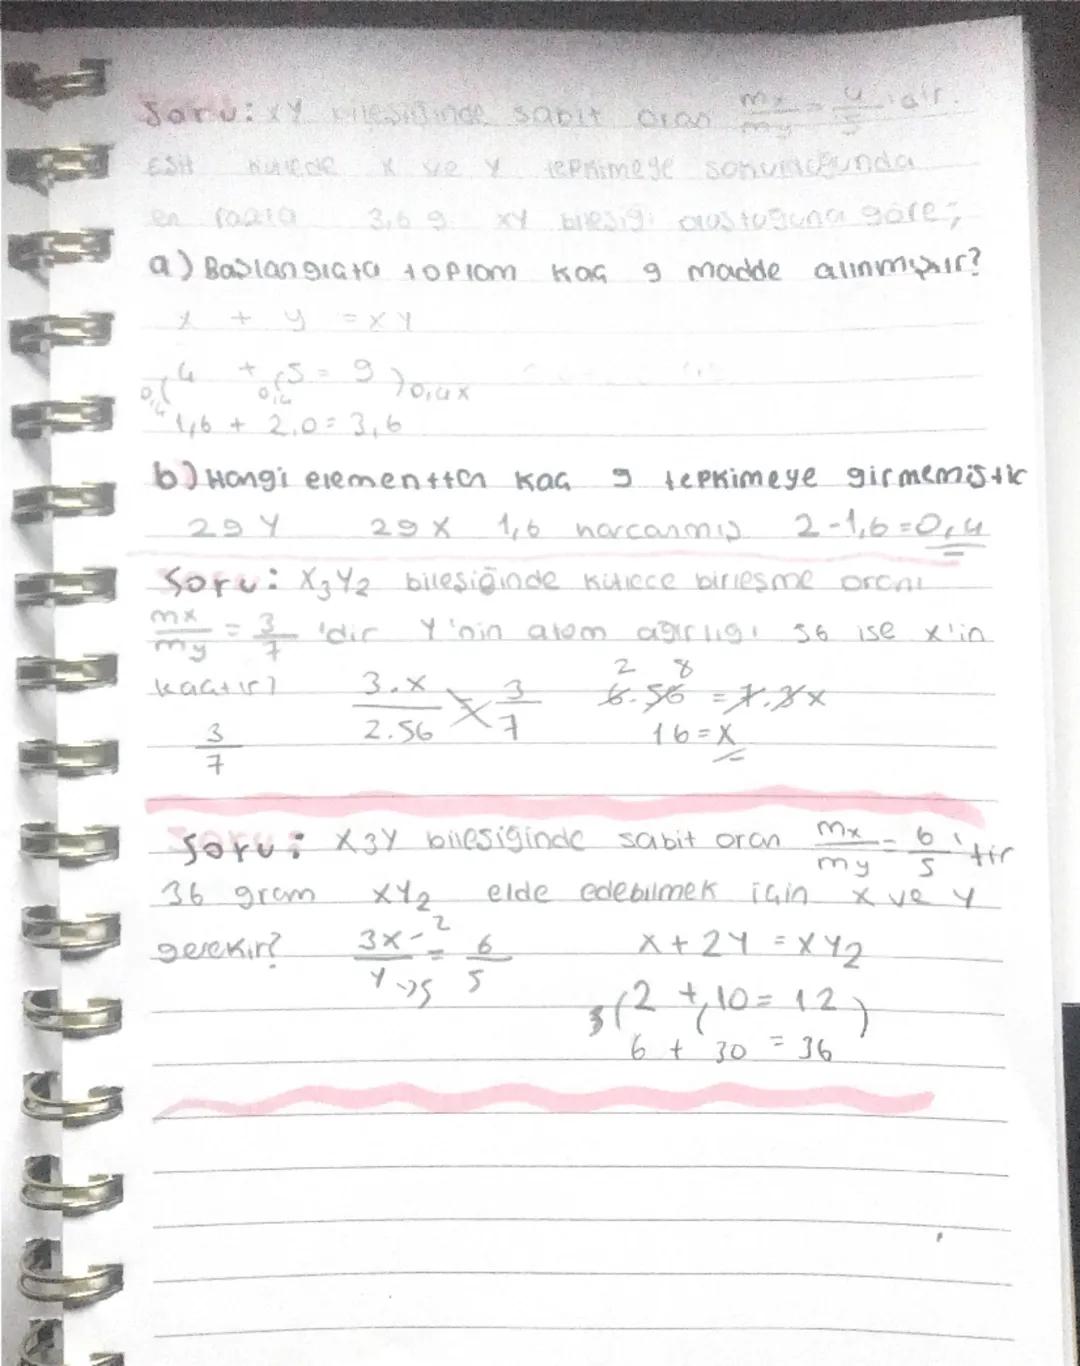 Soru: XY bileşiğinde sabit oran mx/my = 4/5 'dir.
Eşit kütlede X ve Y tepkimeye sokulduğunda
en fazla 3,6 g XY bileşiği oluştuğuna göre;
a) Başlangıçta toplam kaç g madde alınmıştır?
x + y = XY
0,4(4 + 0,4(5 = 9)0,4x
1,6 + 2,0 = 3,6
b) Hangi elementten kaç g tepkimeye girmemiştir
2g Y 2g X 1,6 harcanmış 2-1,6=0,4
Soru: X3Y2 bileşiğinde kütlece birleşme oranı
mx/my = 3/7 'dir Y'nin atom ağırlığı 56 ise x'in
kaçtır?
3/7 3.x/2.56 3/7 6.56 = 7.3x 2 8
16=X
Soru: X3Y bileşiğinde sabit oran mx/my = 6/5 'tir
36 gram XY2 elde edebilmek için x ve y
gerekir? 3x-2/Y→5 = 6/5 X+2Y = XY2
3(2 + (10 = 12)
6 + 30 = 36